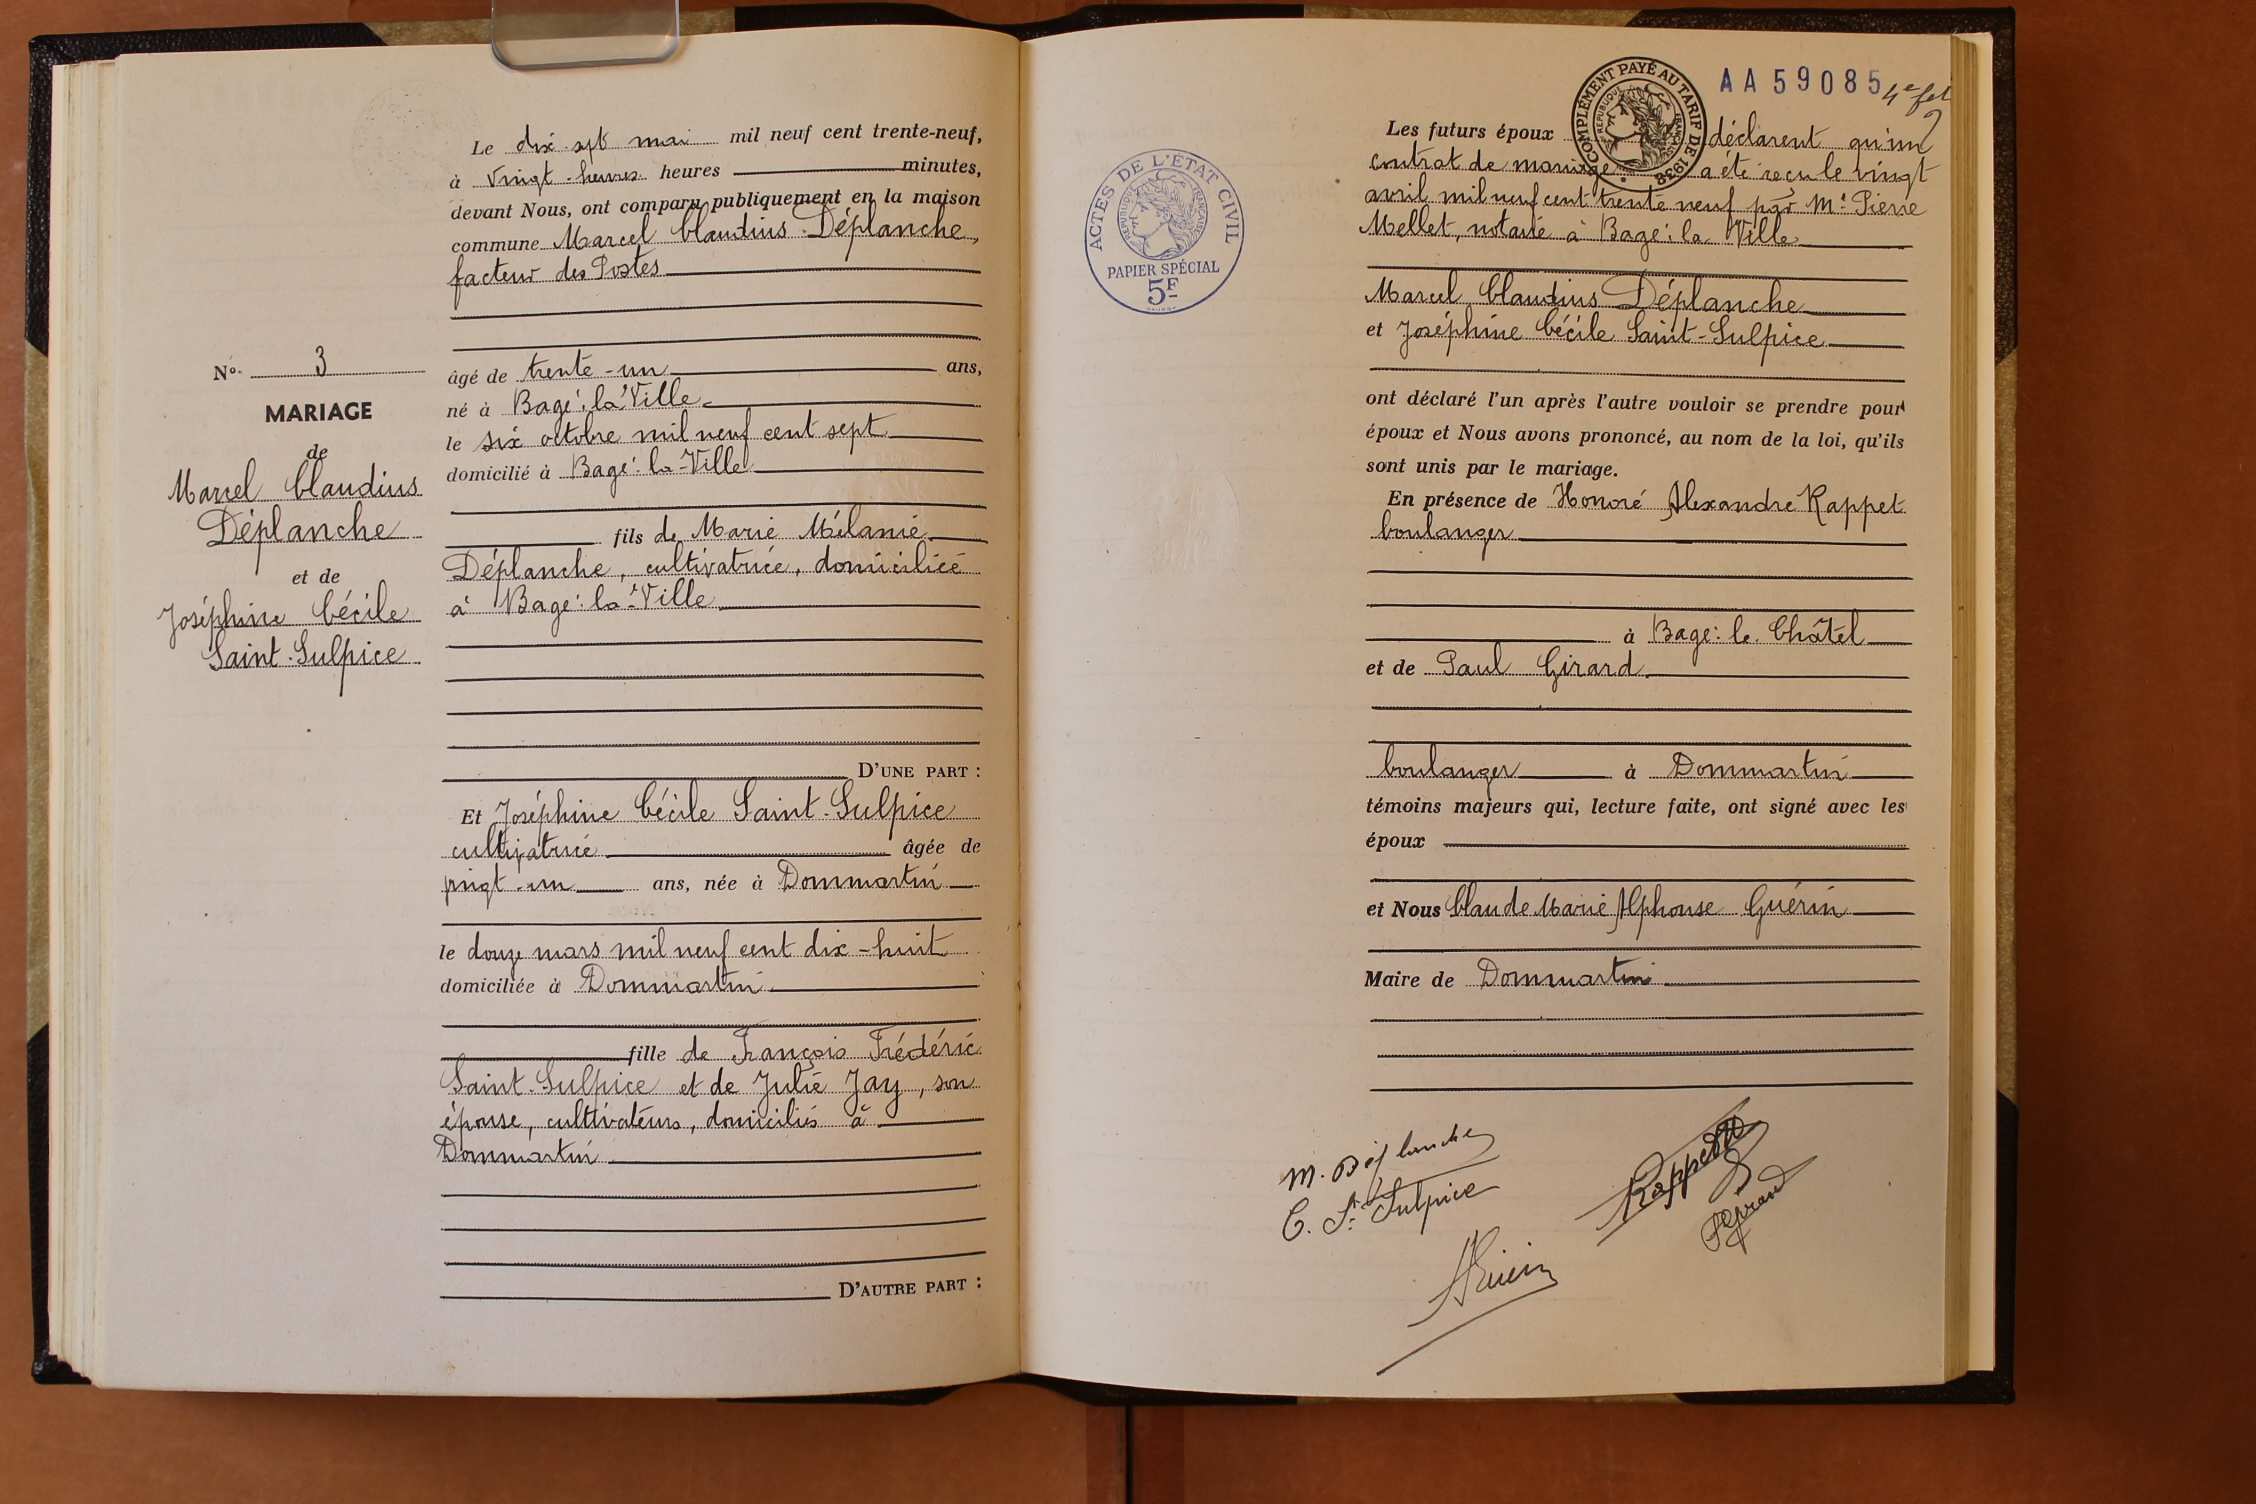 Le dix-sept mai mil neuf cent trente-neuf,
à vingt-heures heures minutes,
devant Nous, ont comparu publiquement en la maison
commune Marcel Claudius Déplanche,
facteur des Postes
No. 3
MARIAGE
de
Marcel Claudius
Déplanche
et de
Joséphine Cécile
Saint-Sulpice
âgé de trente-un ans,
né à Bagé-la-Ville
le six octobre mil neuf cent sept
domicilié à Bagé-la-Ville
fils de Marie Mélanie
Déplanche, cultivatrice, domiciliée
à Bagé-la-Ville
D'UNE PART :
Et Joséphine Cécile Saint-Sulpice
cultivatrice âgée de
vingt-un ans, née à Dommartin
le douze mars mil neuf cent dix-huit
domiciliée à Dommartin
fille de François Frédéric
Saint-Sulpice et de Julie Jay, son
épouse, cultivateurs, domiciliés à
Dommartin
D'AUTRE PART :
ACTES DE L'ÉTAT CIVIL
RÉPUBLIQUE FRANÇAISE
PAPIER SPÉCIAL
5F
COMPLÉMENT PAYÉ AU TARIF DE 1938
RÉPUBLIQUE FRANÇAISE
AA59085
4e fet
Les futurs époux déclarent qu'un
contrat de mariage a été reçu le vingt
avril mil neuf cent trente neuf par Me Pierre
Mellet, notaire à Bagé-la-Ville
Marcel Claudius Déplanche
et Joséphine Cécile Saint-Sulpice
ont déclaré l'un après l'autre vouloir se prendre pour
époux et Nous avons prononcé, au nom de la loi, qu'ils
sont unis par le mariage.
En présence de Honoré Alexandre Rappet
boulanger
à Bagé-le-Châtel
et de Paul Girard
boulanger à Dommartin
témoins majeurs qui, lecture faite, ont signé avec les
époux
et Nous Claude Marie Alphonse Guérin
Maire de Dommartin
M. Déplanche
C. St Sulpice
Rappet
P Girard
A Guérin